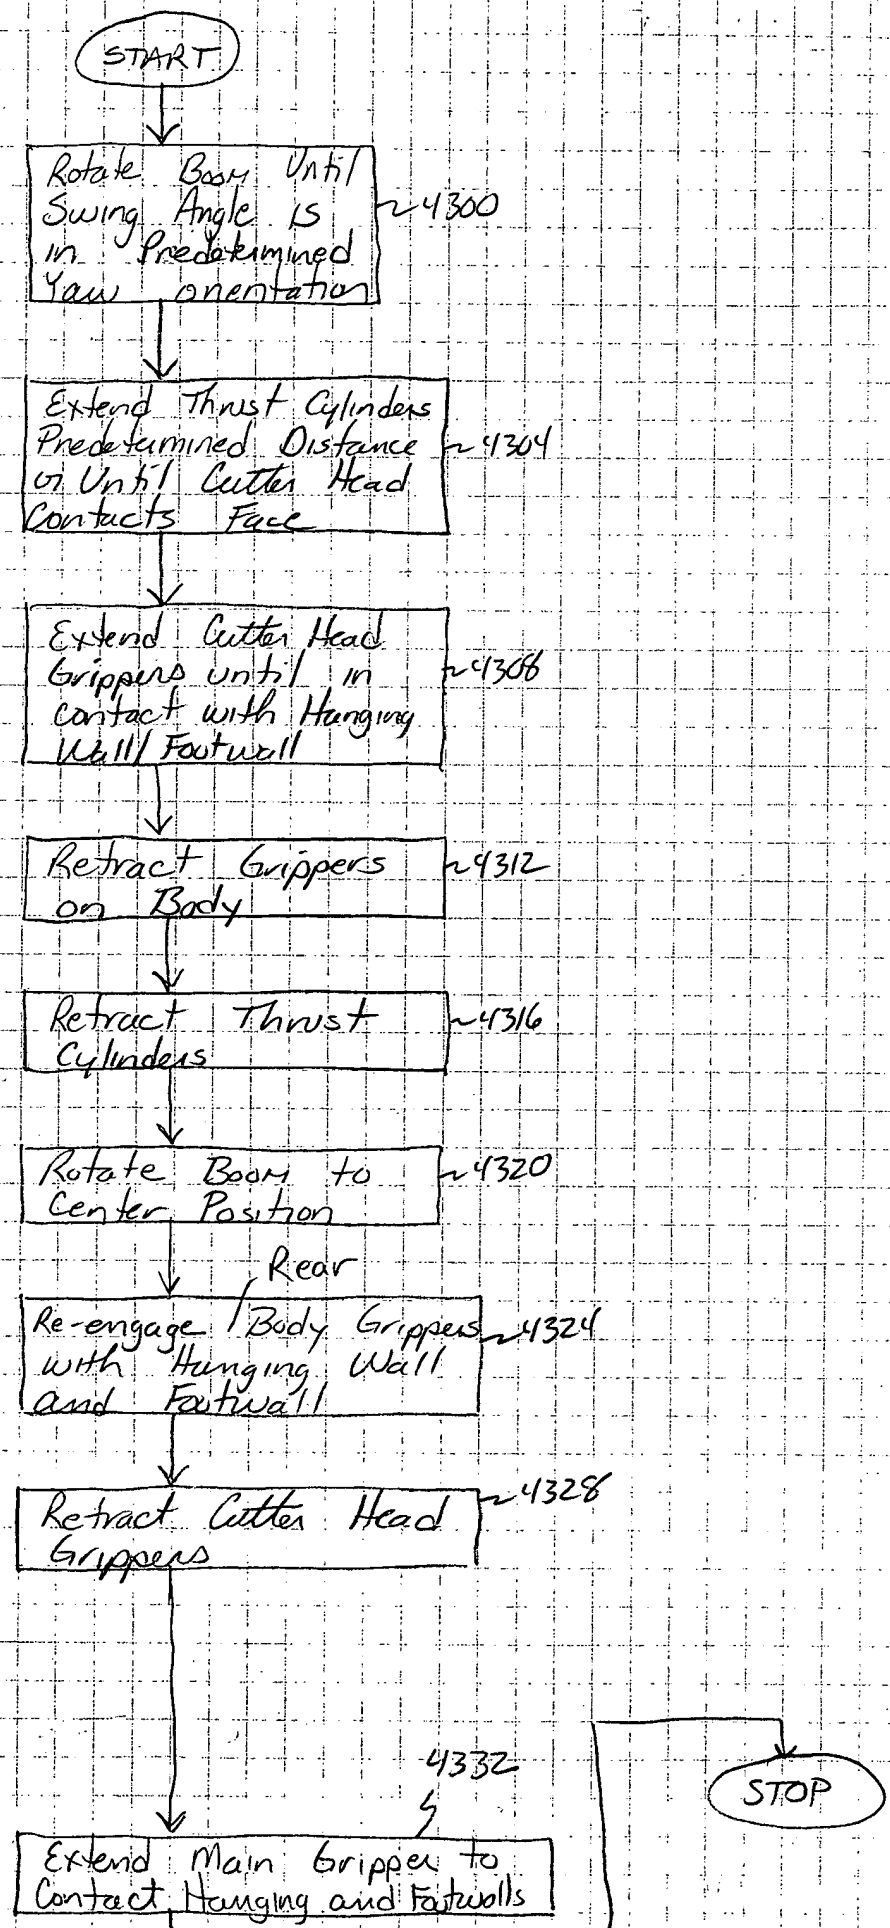 START
Rotate Boom Until
Swing Angle is
in Predetermined
Yaw orientation
4300
Extend Thrust Cylinders
Predetermined Distance
or Until Cutter Head
Contacts Face
4304
Extend Cutter Head
Grippers until in
contact with Hanging
Wall/Footwall
4308
Retract Grippers
on Body
4312
Retract Thrust
Cylinders
4316
Rotate Boom to
Center Position
4320
Rear
Re-engage / Body Grippers
with Hanging Wall
and Footwall
4324
Retract Cutter Head
Grippers
4328
4332
Extend Main Gripper to
Contact Hanging and Footwalls
STOP